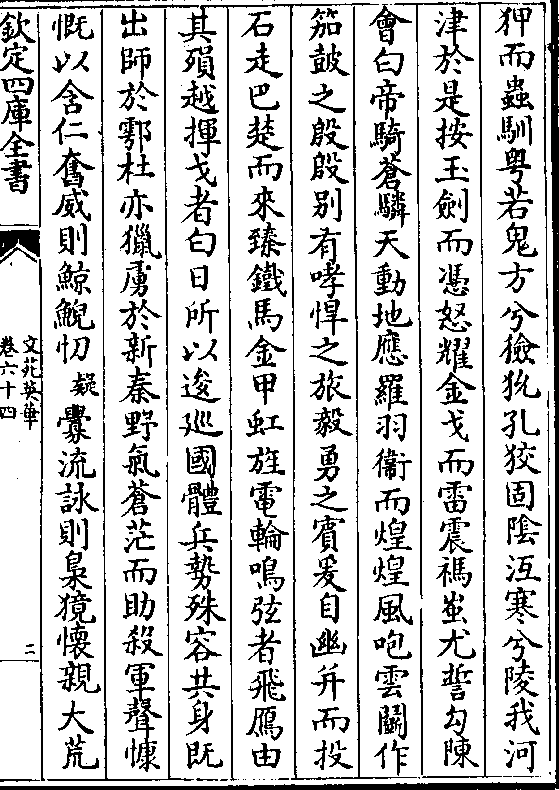 狎而蟲馴粤若鬼方兮獫狁孔狡固陰沍寒兮陵我河
津於是按玉劍而憑怒耀金戈而雷震禡蚩尤誓勾陳
會白帝騎蒼驎天動地應羅羽衞而煌煌風咆雲鬭作
笳鼓之殷殷别有哮悍之旅毅勇之賓爰自幽并而投
石走巴楚而來臻鐵馬金甲虹旌電輪鳴弦者飛鴈由
其殞越揮戈者白日所以逡廵國體兵勢殊容共身既
出師於鄠杜亦獵虜於新秦野氣蒼茫而助殺軍聲慷
慨以含仁奮威則鯨鯢忉疑釁流詠則梟獍懷親大荒
欽定四庫全書
文苑英華
卷六十四
二